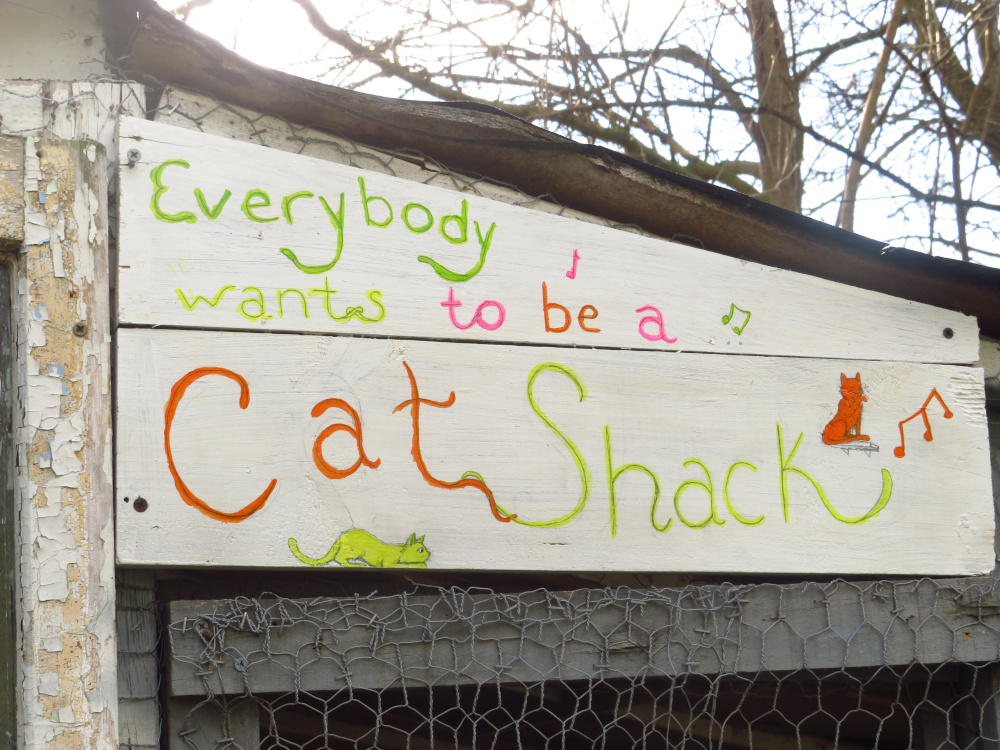 Everybody
wants to be a
Cat Shack